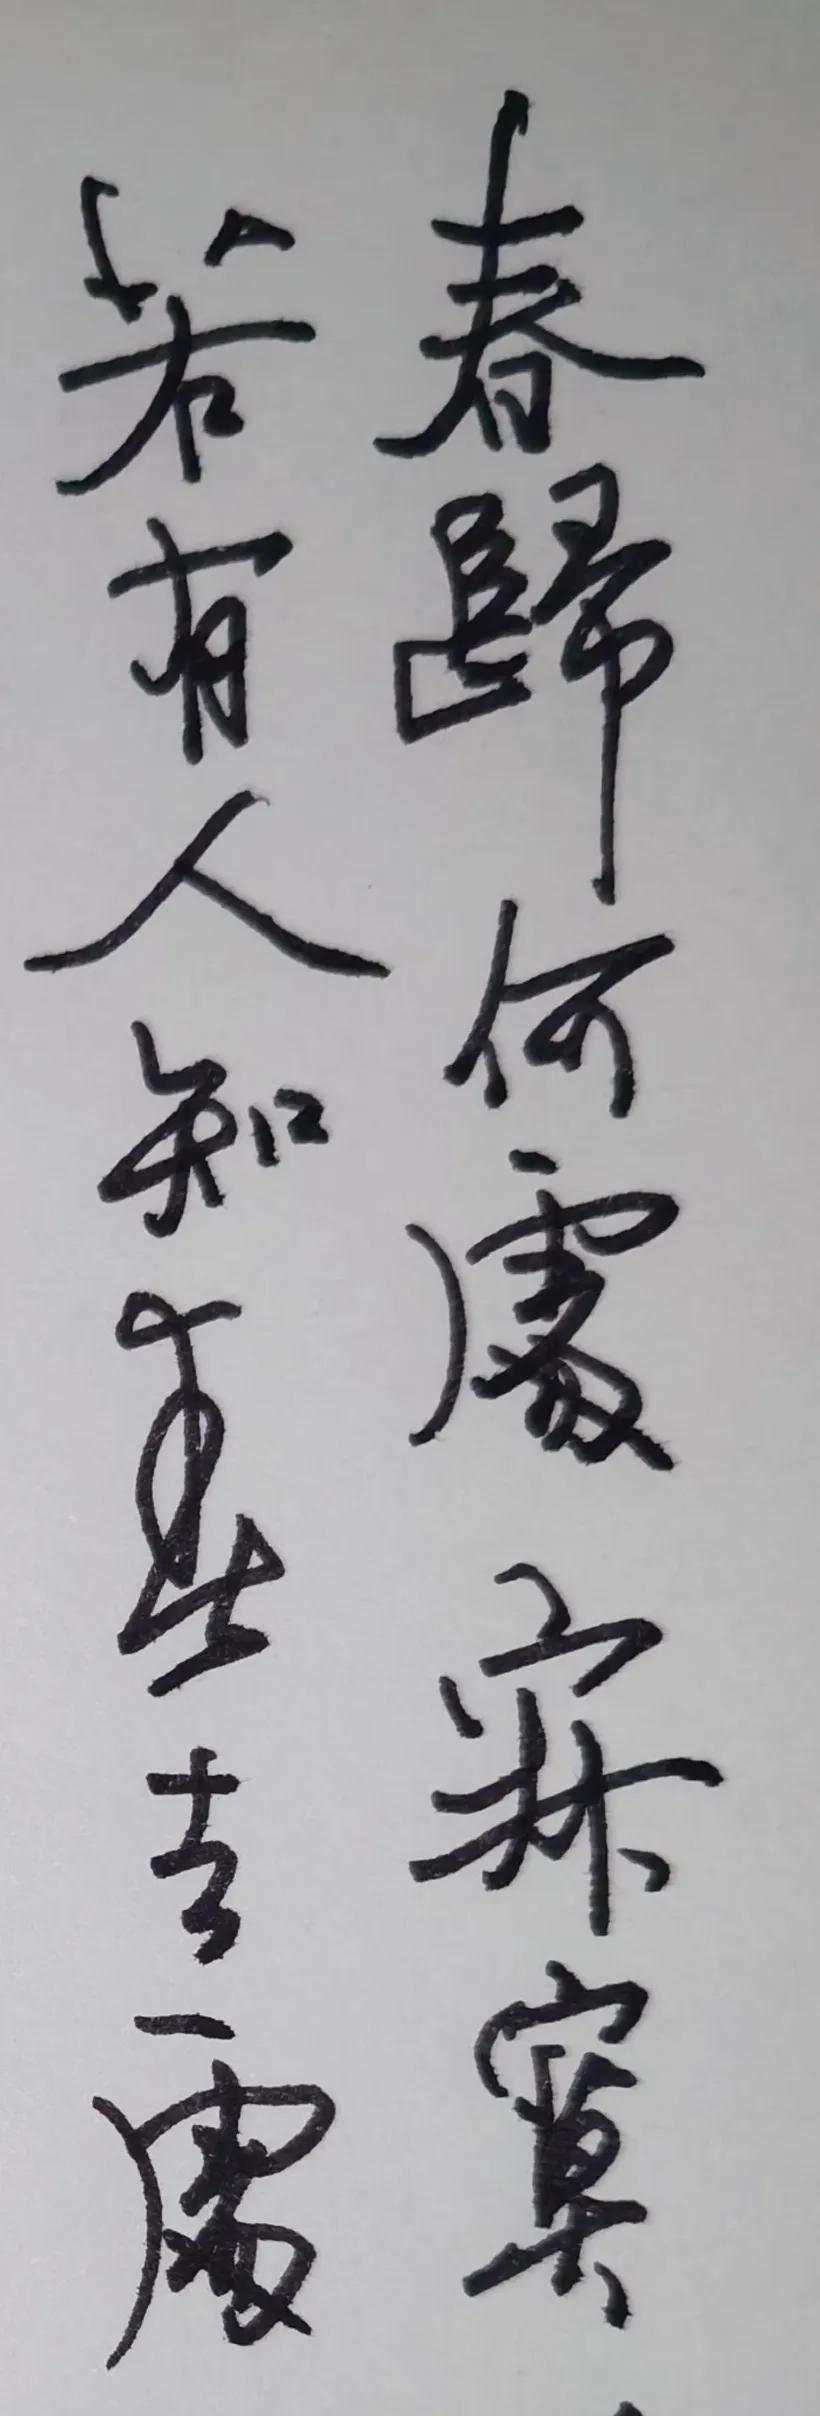 春歸何處寂寞
若有人知春去處